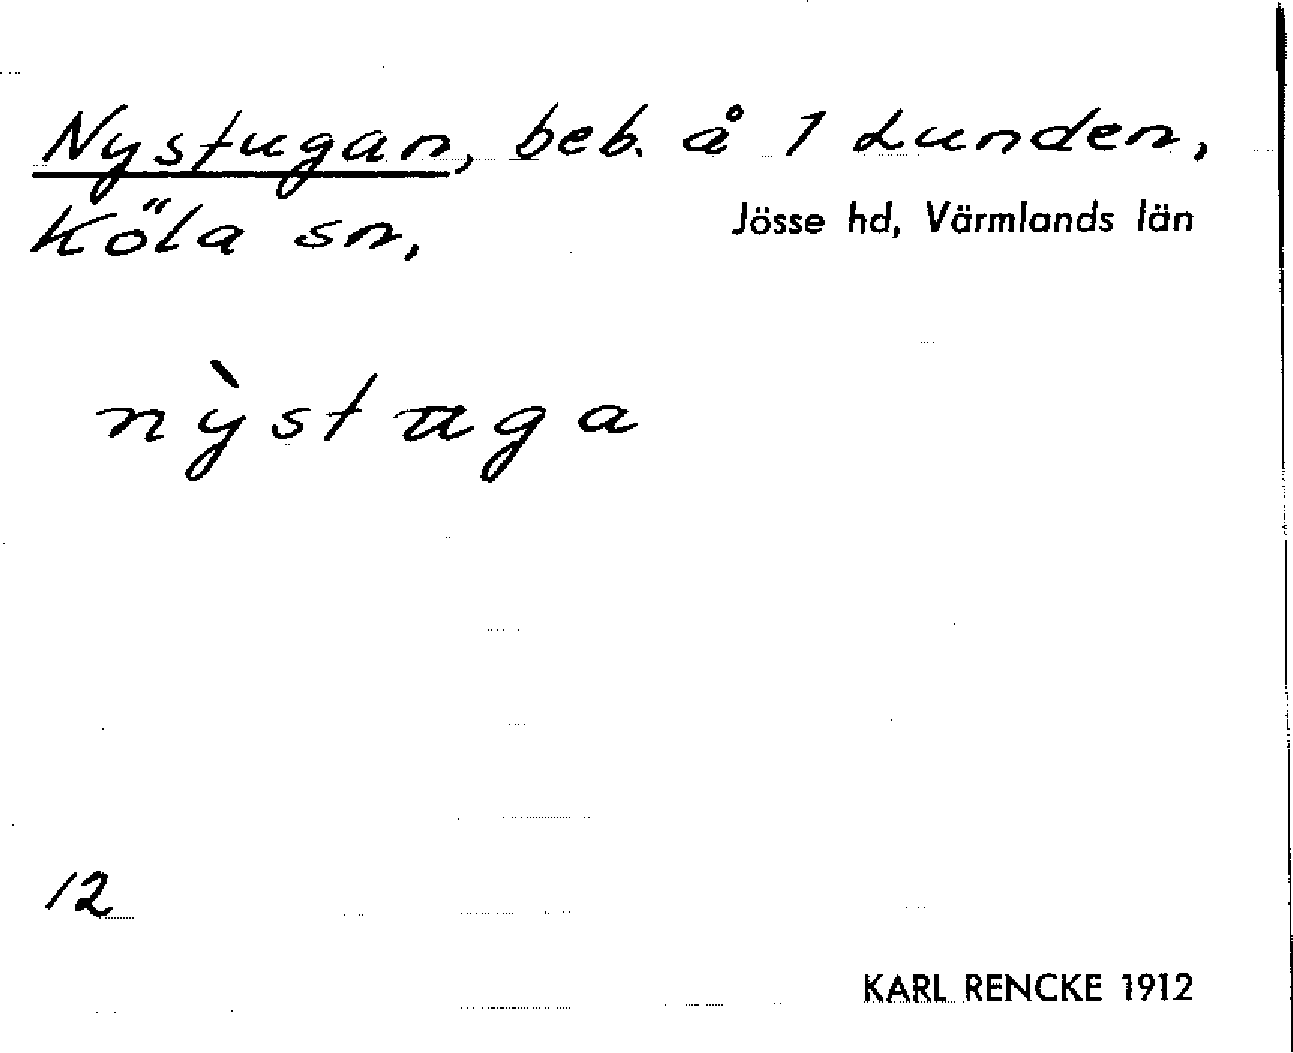 Nystugan, beb. å 1 Lunden,
Köla sn, Jösse hd, Värmlands län
nỳstuga
12
KARL RENCKE 1912